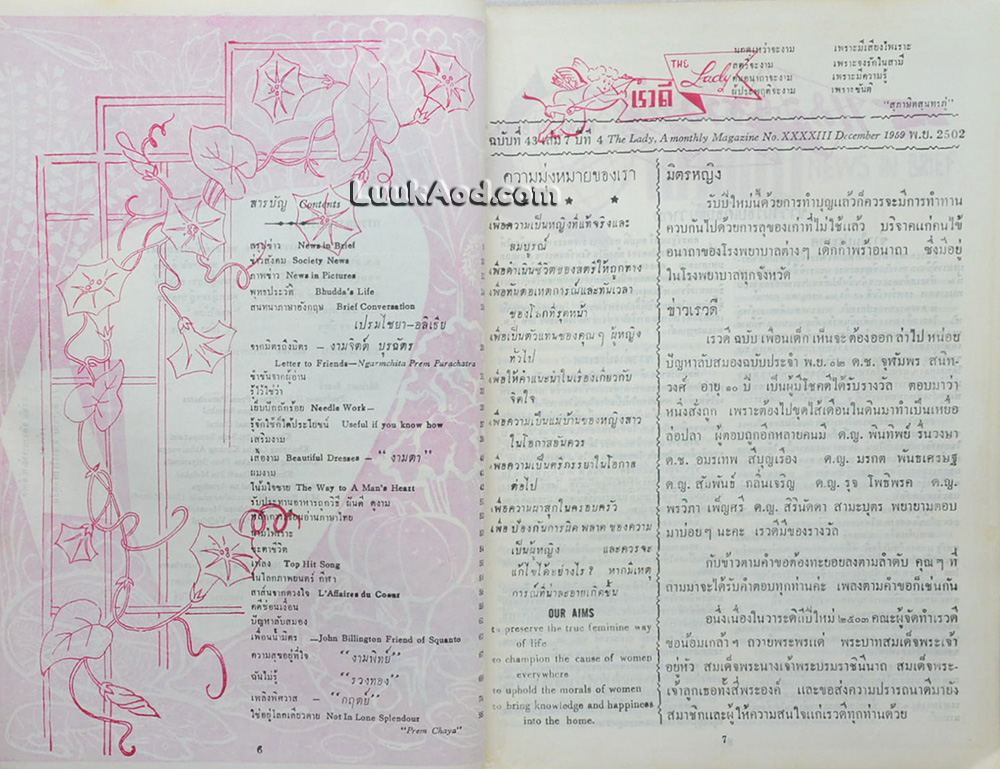 LuukAod.com
สารบัญ Contents
สรุปข่าว News in Brief
ข่าวสังคม Society News
ภาพข่าว News in Pictures
พุทธประวัติ Bhudda's Life
สนทนาภาษาอังกฤษ Brief Conversation
เปรมไชยา-อลิเธีย
จากมิตรถึงมิตร - งามจิตต์ บุรฉัตร
Letter to Friends—Ngarmchita Prem Purachatra
ขำขันจากผู้อ่าน
รู้ไว้ใช่ว่า
เย็บปักถักร้อย Needle Work—
รู้จักใช้ก็ได้ประโยชน์ Useful if you know how
เสริมงาม
เสื้องาม Beautiful Dresses — "งามตา"
ผมงาม
ในน้ำใจชาย The Way to A Man's Heart
รับประทานอาหารถูกวิธี ฟันดี ดูงาม
ชะตาชีวิต
เพลง Top Hit Song
ในโลกภาพยนตร์ กีฬา
สาส์นจากดวงใจ L'Affaires du Coeur
คติซ่อนเงื่อน
ปัญหาลับสมอง
เพื่อนน้ำมิตร —John Billington Friend of Squanto
ความสุขอยู่ที่ใจ "งามพิทย์"
ฉันไม่รู้ "รวงทอง"
เพลิงพิศวาส - "กฤตย์"
ใช่อยู่โลดเดี่ยวดาย Not In Lone Splendour
"Prem Chaya"
6
THE Lady
เรวดี
นกดุเหว่าจะงาม เพราะมีเสียงไพเราะ
สตรีจะงาม เพราะจงรักในสามี
คนอนาถาจะงาม เพราะมีความรู้
ผู้ประพฤติจะงาม เพราะขันติ
"สุภาษิตสุนทรภู่"
ฉบับที่ 43 เล่ม 7 ปีที่ 4 The Lady, A monthly Magazine No. XXXXIII December 1959 พ.ย. 2502
ความมุ่งหมายของเรา
เพื่อความเป็นหญิงที่แท้จริงและ
สมบูรณ์
เพื่อดำเนินชีวิตของสตรีให้ถูกทาง
เพื่อทันต่อเหตุการณ์และทันเวลา
ของโลกที่รุดหน้า
เพื่อเป็นตัวแทนของคุณ ๆ ผู้หญิง
ทั่วไป
เพื่อให้คำแนะนำในเรื่องเกี่ยวกับ
จิตใจ
เพื่อความเป็นแม่บ้านของหญิงสาว
ในโอกาสอันควร
เพื่อความเป็นศรีภรรยาในโอกาส
ต่อไป
เพื่อความผาสุกในครอบครัว
เพื่อป้องกันการผิดพลาดของความ
เป็นผู้หญิง และควรจะ
แก้ไขได้อย่างไร? หากมีเหตุ
การณ์ที่น่าละอายเกิดขึ้น
OUR AIMS
to preserve the true feminine way
of life
to champion the cause of women
everywhere
to uphold the morals of women
to bring knowledge and happiness
into the home.
มิตรหญิง
รับปีใหม่นี้ด้วยการทำบุญแล้วก็ควรจะมีการทำทาน
ควบกันไปด้วยการสุขของเก่าที่ไม่ใช้แล้ว บริจาคแก่คนไข้
อนาถาของโรงพยาบาลต่างๆ เด็กกำพร้าอนาถา ซึ่งมีอยู่
ในโรงพยาบาลทุกจังหวัด
ข่าวเรวดี
เรวดี ฉบับ เพื่อนเด็ก เห็นจะ ต้องออก ล่าไป หน่อย
ปัญหาลับสมองฉบับประจำ พ.ย. ๐๒ ด.ช. จุฬัมพร สนิท-
วงศ์ อายุ ๑๐ ปี เป็นผู้มีโชคดีได้รับรางวัล ตอบมาว่า
หนึ่งสั่งถูก เพราะต้องไปขุดไส้เดือนในดินมาทำเป็นเหยื่อ
ล่อปลา ผู้ตอบถูกอีกหลายคนมี ด.ญ. พินทิพย์ รื่นวงษา
ด.ช. อมรเทพ สีบุญเรือง ด.ญ. มรกต พันธเศรษฐ
ด.ญ. สัมพันธ์ กลิ่นเจริญ ด.ญ. รุจ โพธิพรค ด.ญ.
พรวิภา เพ็ญศรี ด.ญ. สิรินัดดา สามะบุตร พยายามตอบ
มาบ่อยๆ นะคะ เรวดีมีของรางวัล
กับข้าวตามคำขอต้องทะยอยลงตามลำดับ คุณๆ ที่
ถามมาจะได้รับคำตอบทุกท่านค่ะ เพลงตามคำขอก็เช่นกัน
อนึ่งเนื่องในวาระดิถีปีใหม่ ๒๕๐๓ คณะผู้จัดทำเรวดี
ขอน้อมเกล้าฯ ถวายพระพรแด่ พระบาทสมเด็จพระเจ้า
อยู่หัว สมเด็จพระนางเจ้าพระบรมราชินีนาถ สมเด็จพระ-
เจ้าลูกเธอทั้งสี่พระองค์ และขอส่งความปรารถนาดีมายัง
สมาชิกและผู้ให้ความสนใจแก่เรวดีทุกท่านด้วย
7